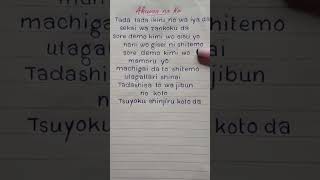 Akuma no ko
Tada tada ikiru no wa iya da
sekai wa zankoku da
sore demo kimi wo aisu yo
nani wo gisei ni shitemo
sore demo kimi wo
mamoru yo
machigai da to shitemo
utagattari shinai
Tadashisa to wa jibun
no koto
Tsuyoku shinjiru koto da
koto da